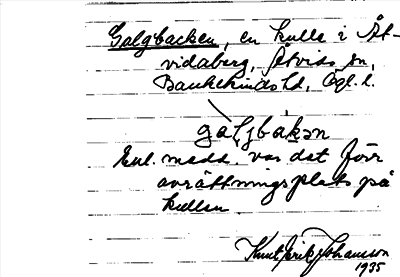 Galgbacken, en kulle i Åt-
vidaberg, Åtvids sn,
Bankekinds hd, Ögl. l.
galjbakən
Enl. medd. var det förr
avrättningsplats på
kullen.
Knut Erik Johansson
1935